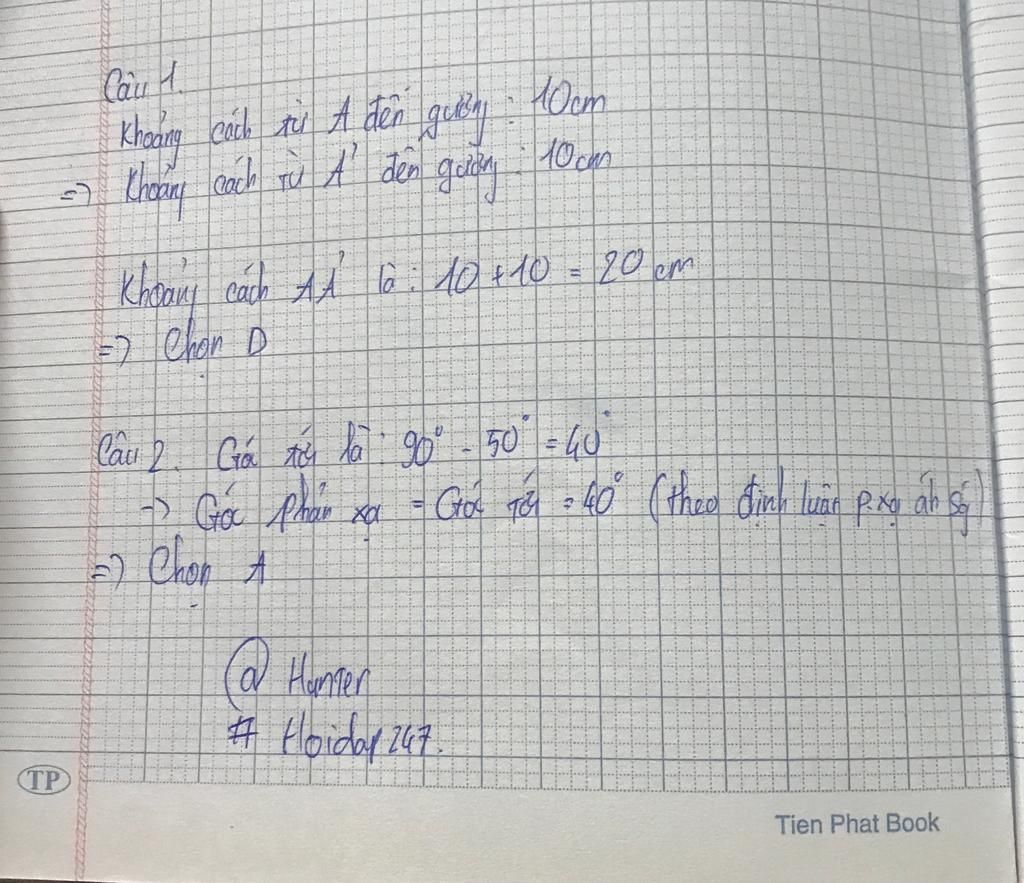 Câu 1.
Khoảng cách từ A đến gương : 10cm
=> Khoảng cách từ A' đến gương : 10cm
Khoảng cách AA' là : 10 + 10 = 20 cm
=> Chọn D
Câu 2. Góc tới là : 90° - 50° = 40°
-> Góc phản xạ = Góc tới = 40° (theo định luật p.xạ ánh sg)
=> Chọn A
@ Hunter
# Hoidap247.
TP
Tien Phat Book